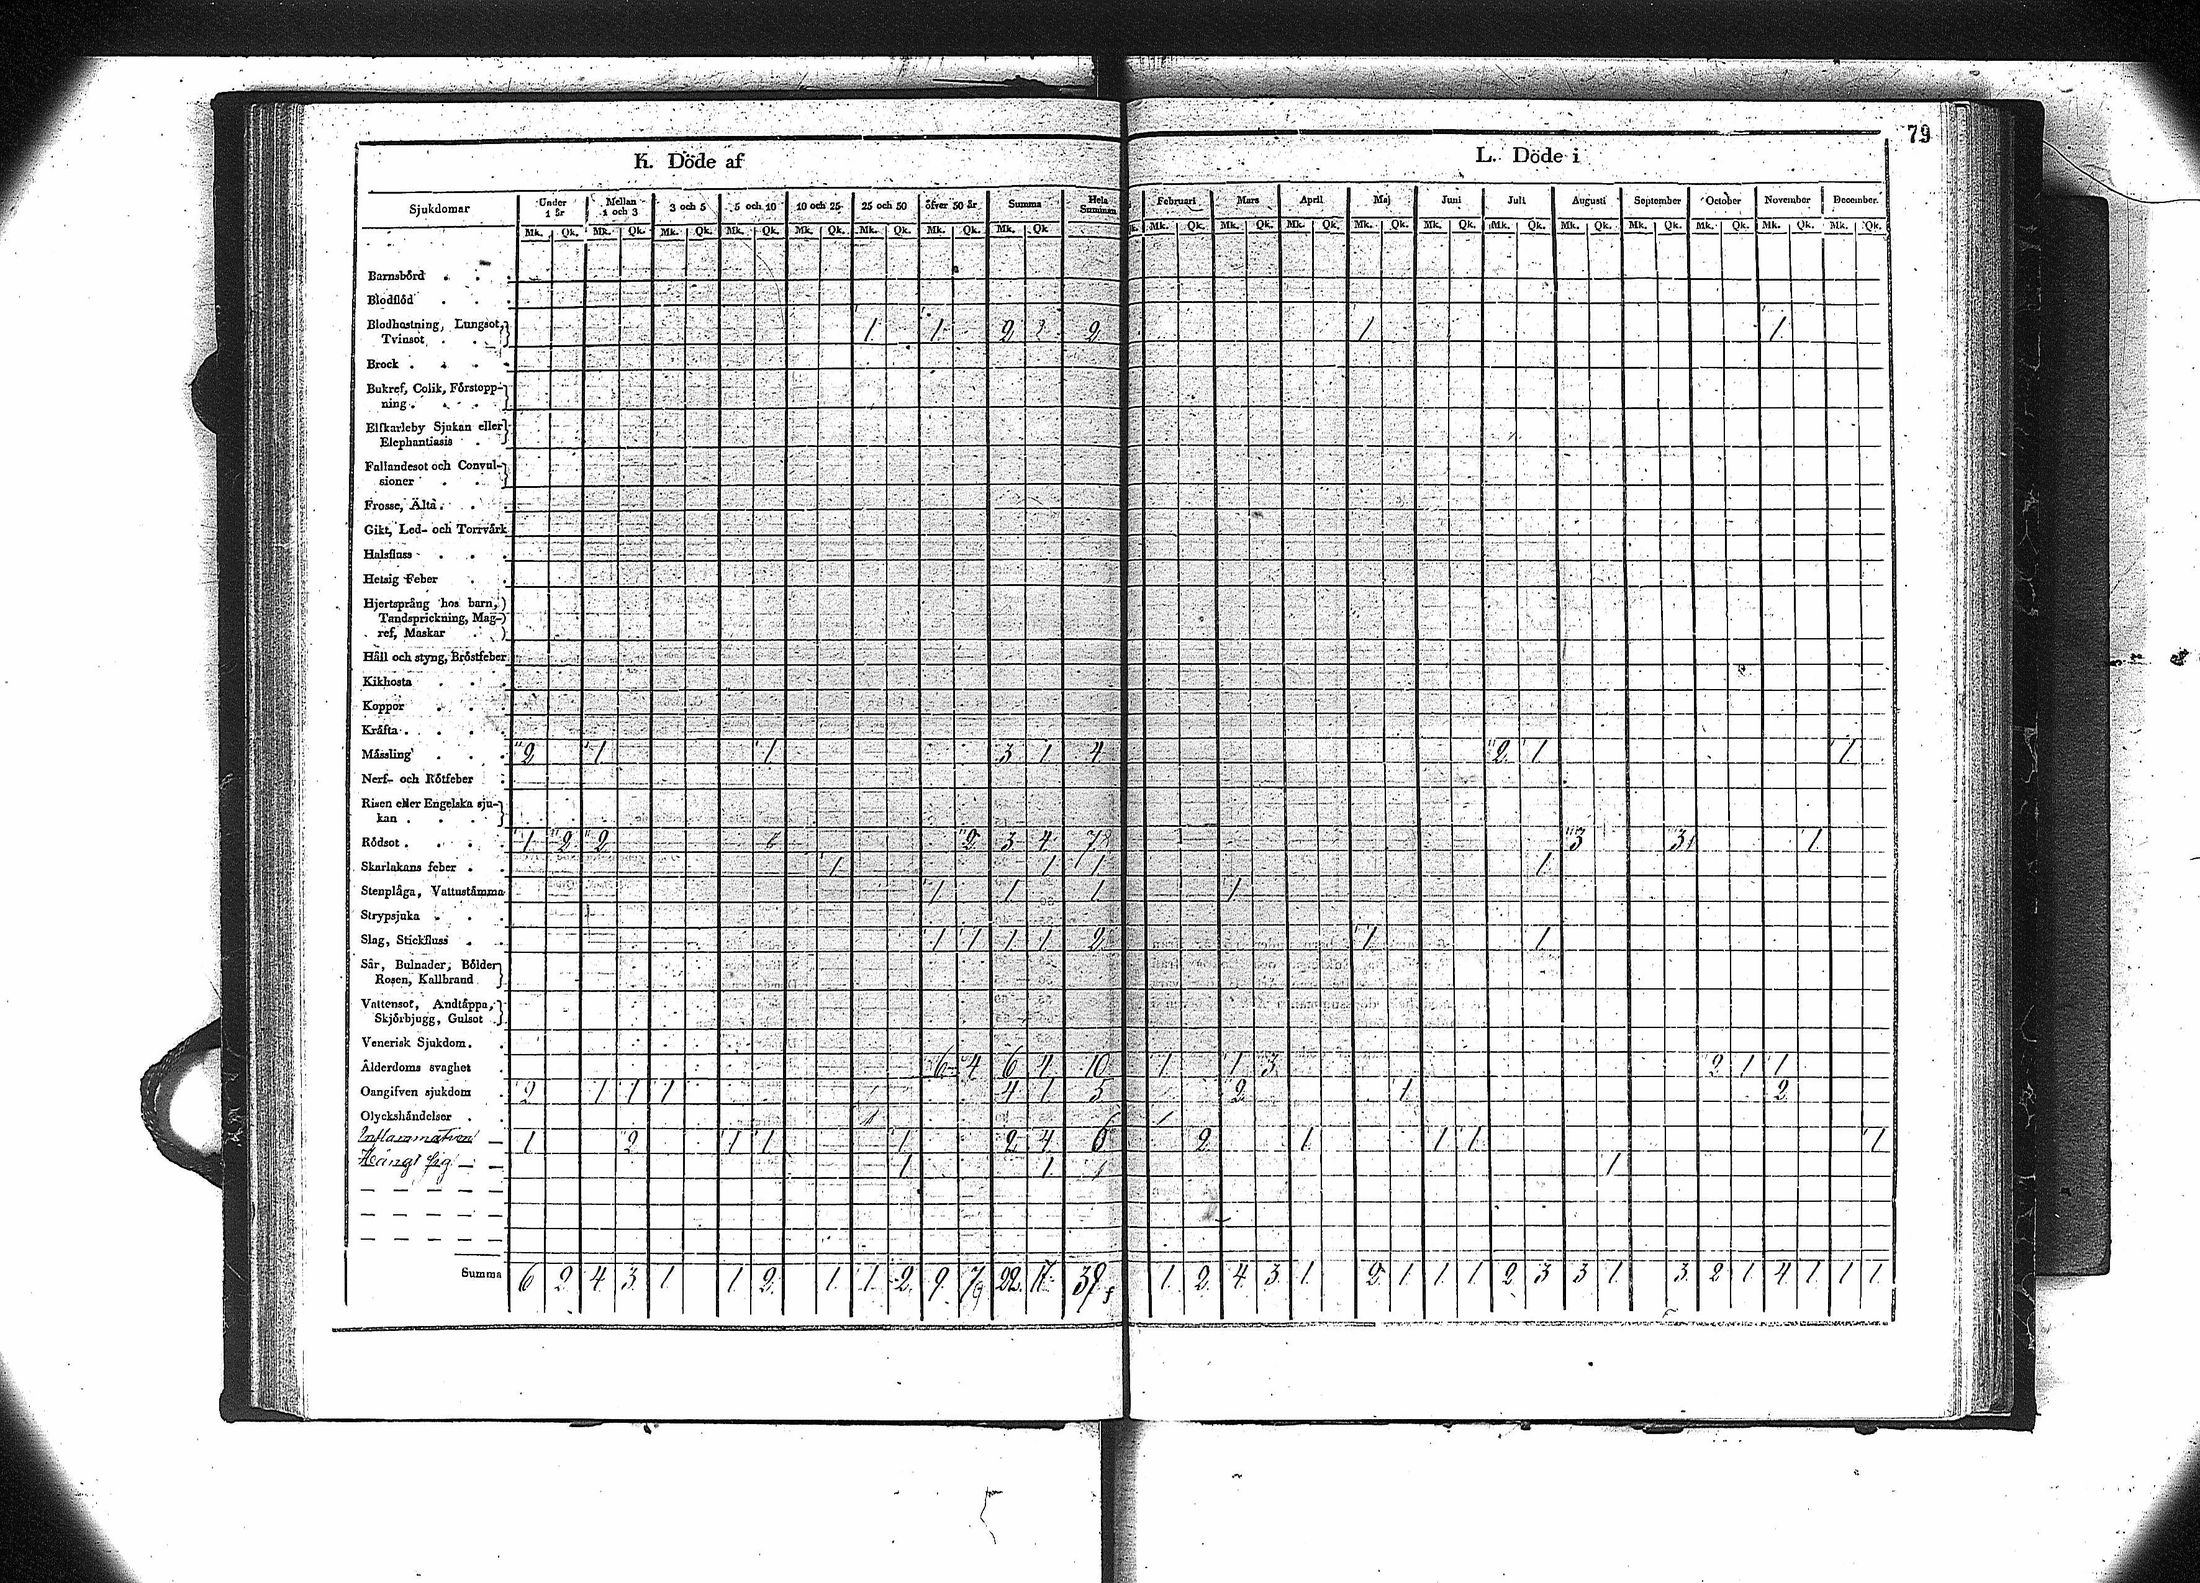 79
K. Döde af
L. Döde i
Sjukdomar Under 1 år Mellan 1 och 3 3 och 5 5 och 10 10 och 25 25 och 50 öfver 50 år Summa Hela Summan Februari Mars April Maj Juni Juli Augusti September October November December.
Mk. Qk. Mk. Qk. Mk. Qk. Mk. Qk. Mk. Qk. Mk. Qk. Mk. Qk. Mk. Qk Mk. Qk. Mk. Qk. Mk. Qk. Mk. Qk. Mk. Qk. Mk. Qk. Mk. Qk. Mk. Qk. Mk. Qk. Mk. Qk. Mk. Qk.
Barnsbörd
Blodflöd
Blodhostning, Lungsot,
Tvinsot 1 1 2 2 1 1
Brock
Bukref, Colik, Förstopp-
ning
Elfkarleby Sjukan eller
Elephantiasis
Fallandesot och Convul-
sioner
Frosse, Älta
Gikt, Led- och Torrvärk
Halsfluss
Hetsig Feber
Hjertsprång hos barn,
Tandsprickning, Mag-
ref, Maskar
Håll och styng, Bröstfeber
Kikhosta
Koppor
Kräfta
Mässling 2 1 1 3 1 4 2 1 1
Nerf- och Rötfeber
Risen eller Engelska sju-
kan
Rödsot 1 2 2 2 3 4 7 3 3 1
Skarlakans feber 1 1 1 1
Stenplåga, Vattustämma 1 1 1 1
Strypsjuka
Slag, Stickfluss 1 1 1 1 2 1 1
Sår, Bulnader, Bölder
Rosen, Kallbrand
Vattensot, Andtäppa,
Skjörbjugg, Gulsot
Venerisk Sjukdom.
Ålderdoms svaghet 6 4 6 4 10 1 1 3 2 1 1
Oangifven sjukdom 2 1 1 1 4 1 5 2 1 2
Olyckshändelser
Inflammation 1 2 1 1 1 2 4 6 2 1 1 1 1
Hängt sig 1 1 1 1
Summa 6 2 4 3 1 1 2 1 1 2 9 7 22 17 39 1 2 4 3 1 2 1 1 1 2 3 3 1 3 2 1 4 1 1 1